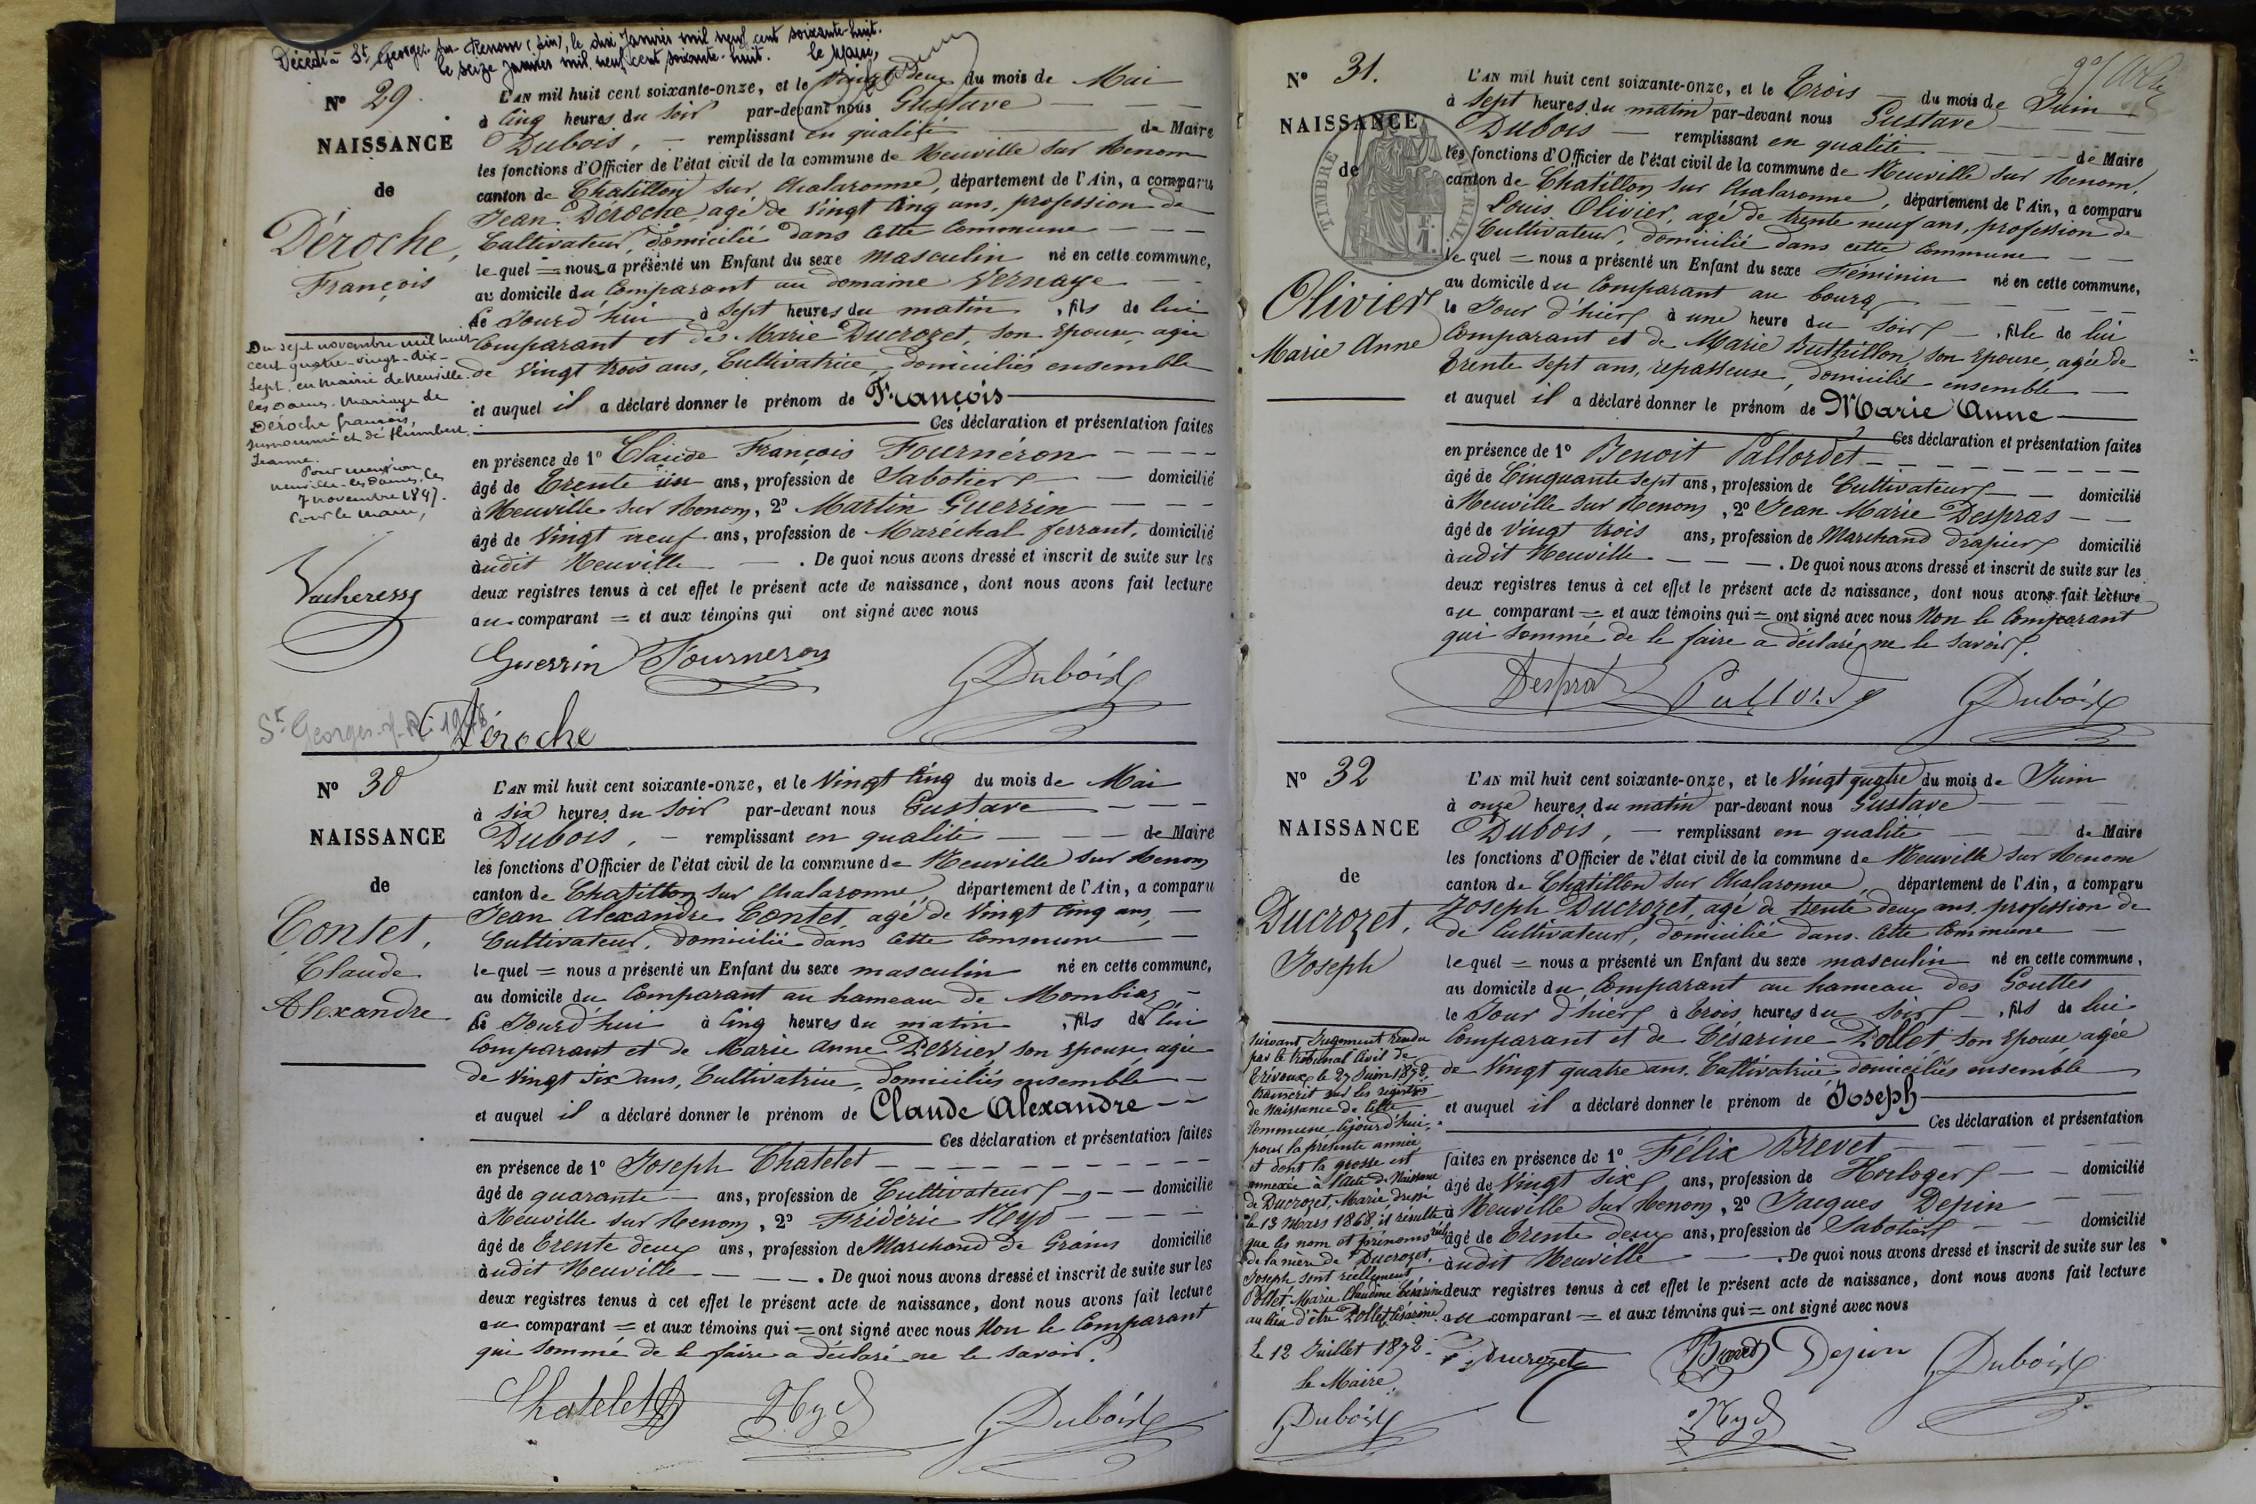 Décédé à St Georges sur Renom (Ain), le dix Janvier mil neuf cent soixante-huit.
le seize Janvier mil neuf cent soixante-huit. Le Maire,
Nº 29.
NAISSANCE
de
Déroche,
François
Du sept novembre mil huit
cent quatre-vingt-dix-
sept en mairie de Neuville
les Dames. Mariage de
Déroche françois,
surnommé et de Humbert
Jeanne.
Pour mention
Neuville-les-Dames, le
7 novembre 1897.
Pour le Maire,
Vacheresse
L'AN mil huit cent soixante-onze, et le Vingt Deux du mois de Mai
à Cinq heures du Soir par-devant nous Gustave
Dubois, remplissant en qualité de Maire
les fonctions d'Officier de l'état civil de la commune de Neuville sur Renom
canton de Chatillon sur Chalaronne, département de l'Ain, a comparu
Jean Déroche, agé de Vingt Cinq ans, profession de
Cultivateur, domicilié dans Cette Commune
lequel = nous a présenté un Enfant du sexe masculin né en cette commune,
au domicile du Comparant au domaine Vernaye
le Jourd'hui à Sept heures du matin, fils de lui
Comparant et de Marie Ducrozet, son Epouse, agée
de Vingt trois ans, Cultivatrice, domiciliés ensemble
et auquel il a déclaré donner le prénom de François
Ces déclaration et présentation faites
en présence de 1º Claude François Fournéron
âgé de Trente un ans, profession de Sabotier domicilié
à Neuville sur Renom, 2º Martin Guerrin
âgé de Vingt neuf ans, profession de Maréchal ferrant, domicilié
audit Neuville. De quoi nous avons dressé et inscrit de suite sur les
deux registres tenus à cet effet le présent acte de naissance, dont nous avons fait lecture
au comparant = et aux témoins qui ont signé avec nous
Guerrin Fourneron Dubois
St Georges s. R. 1968
Déroche
Nº 30
NAISSANCE
de
Contet,
Claude
Alexandre
L'AN mil huit cent soixante-onze, et le Vingt Cinq du mois de Mai
à Six heures du Soir par-devant nous Gustave
Dubois, remplissant en qualité de Maire
les fonctions d'Officier de l'état civil de la commune de Neuville sur Renom
canton de Chatillon sur Chalaronne, département de l'Ain, a comparu
Jean Alexandre Contet, agé de Vingt Cinq ans,
Cultivateur, domicilié dans Cette Commune
lequel = nous a présenté un Enfant du sexe masculin né en cette commune,
au domicile du Comparant au hameau de Mombiaz
le Jourd'hui à Cinq heures du matin, fils de lui
Comparant et de Marie Anne Perrier, son Epouse, agée
de Vingt Six ans, Cultivatrice, domiciliés ensemble
et auquel il a déclaré donner le prénom de Claude Alexandre
Ces déclaration et présentation faites
en présence de 1º Joseph Chatelet
âgé de quarante ans, profession de Cultivateur domicilié
à Neuville sur Renom, 2º Frédéric Nyd
âgé de Trente deux ans, profession de Marchand de Grains domicilié
audit Neuville. De quoi nous avons dressé et inscrit de suite sur les
deux registres tenus à cet effet le présent acte de naissance, dont nous avons fait lecture
au comparant = et aux témoins qui = ont signé avec nous Non le Comparant
qui Sommé de le faire a déclaré ne le Savoir.
Chatelet Nyd Dubois
Nº 31.
NAISSANCE
de
TIMBRE IMPÉRIAL
Olivier
Marie Anne
L'AN mil huit cent soixante-onze, et le Trois du mois de Juin
à Sept heures du matin par-devant nous Gustave
Dubois remplissant en qualité de Maire
les fonctions d'Officier de l'état civil de la commune de Neuville sur Renom,
canton de Chatillon sur Chalaronne, département de l'Ain, a comparu
Louis Olivier, agé de trente neuf ans, profession de
Cultivateur, domicilié dans cette Commune
lequel = nous a présenté un Enfant du sexe Féminin né en cette commune,
au domicile du Comparant au bourg
le Jour d'hier à une heure du Soir, fille de lui
Comparant et de Marie Buthillon, son Epouse, agée de
Trente Sept ans, repasseuse, domiciliés ensemble
et auquel il a déclaré donner le prénom de Marie Anne
Ces déclaration et présentation faites
en présence de 1º Benoit Pallordet
âgé de Cinquante Sept ans, profession de Cultivateur domicilié
à Neuville sur Renom, 2º Jean Marie Despras
âgé de Vingt trois ans, profession de Marchand Drapier domicilié
audit Neuville. De quoi nous avons dressé et inscrit de suite sur les
deux registres tenus à cet effet le présent acte de naissance, dont nous avons fait lecture
au comparant = et aux témoins qui = ont signé avec nous Non le Comparant
qui Sommé de le faire a déclaré ne le Savoir.
Despras Pallordet Dubois
Nº 32
NAISSANCE
de
Ducrozet,
Joseph
Suivant Jugement rendu
par le tribunal Civil de
Trévoux le 27 Juin 1872
transcrit sur les registres
de Naissance de Cette
Commune Cejourd'hui,
pour la présente année
et dont la grosse est
annexée à l'acte de Naissance
de Ducrozet, Marie dressé
le 13 Mars 1868, il résulte
que les nom et prénoms réels
de la mère de Ducrozet,
Joseph sont réellement
Pollet, Marie Claudine Césarine
au lieu d'être Pollet Césarine
Le 12 Juillet 1872.
Le Maire,
Dubois
L'AN mil huit cent soixante-onze, et le Vingt quatre du mois de Juin
à onze heures du matin par-devant nous Gustave
Dubois, remplissant en qualité de Maire
les fonctions d'Officier de l'état civil de la commune de Neuville sur Renom
canton de Chatillon sur Chalaronne, département de l'Ain, a comparu
Joseph Ducrozet, agé de trente deux ans, profession de
de Cultivateur, domicilié dans Cette Commune
lequel = nous a présenté un Enfant du sexe masculin né en cette commune,
au domicile du Comparant au hameau des Gouttes
le Jour d'hier à Trois heures du Soir, fils de lui
Comparant et de Césarine Pollet son Epouse agée
de Vingt quatre ans, Cultivatrice domiciliés ensemble
et auquel il a déclaré donner le prénom de Joseph
Ces déclaration et présentation
faites en présence de 1º Félix Brevet
âgé de Vingt Six ans, profession de Horloger domicilié
à Neuville sur Renom, 2º Jacques Depin
âgé de Trente deux ans, profession de Sabotier domicilié
audit Neuville. De quoi nous avons dressé et inscrit de suite sur les
deux registres tenus à cet effet le présent acte de naissance, dont nous avons fait lecture
au comparant = et aux témoins qui = ont signé avec nous
Ducrozet Brevet Depin Dubois
Nyd